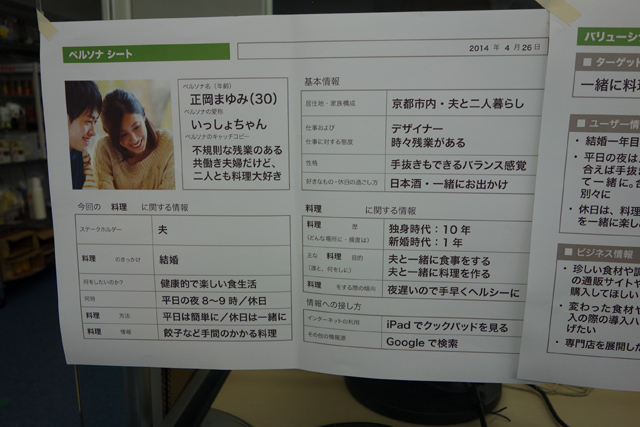 ペルソナ シート
2014 年 4 月 26 日
ペルソナ名（年齢）
正岡まゆみ（30）
ペルソナの愛称
いっしょちゃん
ペルソナのキャッチコピー
不規則な残業のある
共働き夫婦だけど、
二人とも料理大好き
今回の 料理 に関する情報
ステークホルダー 夫
料理 のきっかけ 結婚
何をしたいのか？ 健康的で楽しい食生活
何時 平日の夜 8〜9 時／休日
料理 方法 平日は簡単に／休日は一緒に
料理 情報 餃子など手間のかかる料理
基本情報
居住地・家族構成 京都市内・夫と二人暮らし
仕事および
仕事に対する態度
デザイナー
時々残業がある
性格 手抜きもできるバランス感覚
好きなもの・休日の過ごし方 日本酒・一緒にお出かけ
料理 に関する情報
料理 歴
（どんな場所に・頻度は）
独身時代：10 年
新婚時代：1 年
主な 料理 目的
（誰と、何をしに）
夫と一緒に食事をする
夫と一緒に料理を作る
料理 をする際の傾向 夜遅いので手早くヘルシーに
情報への接し方
インターネットの利用 iPad でクックパッドを見る
その他の情報源 Google で検索
バリューシ
■ ターゲット
一緒に料理
■ ユーザー情
・ 結婚一年目
・ 平日の夜は
合えば手抜き
て一緒に。
別々に
・ 休日は、料理
を一緒に楽し
■ ビジネス情報
・ 珍しい食材や調
の通販サイトや
購入してほしい
・ 変わった食材や
入の際の導入ハ
げたい
・ 専門店を展開した